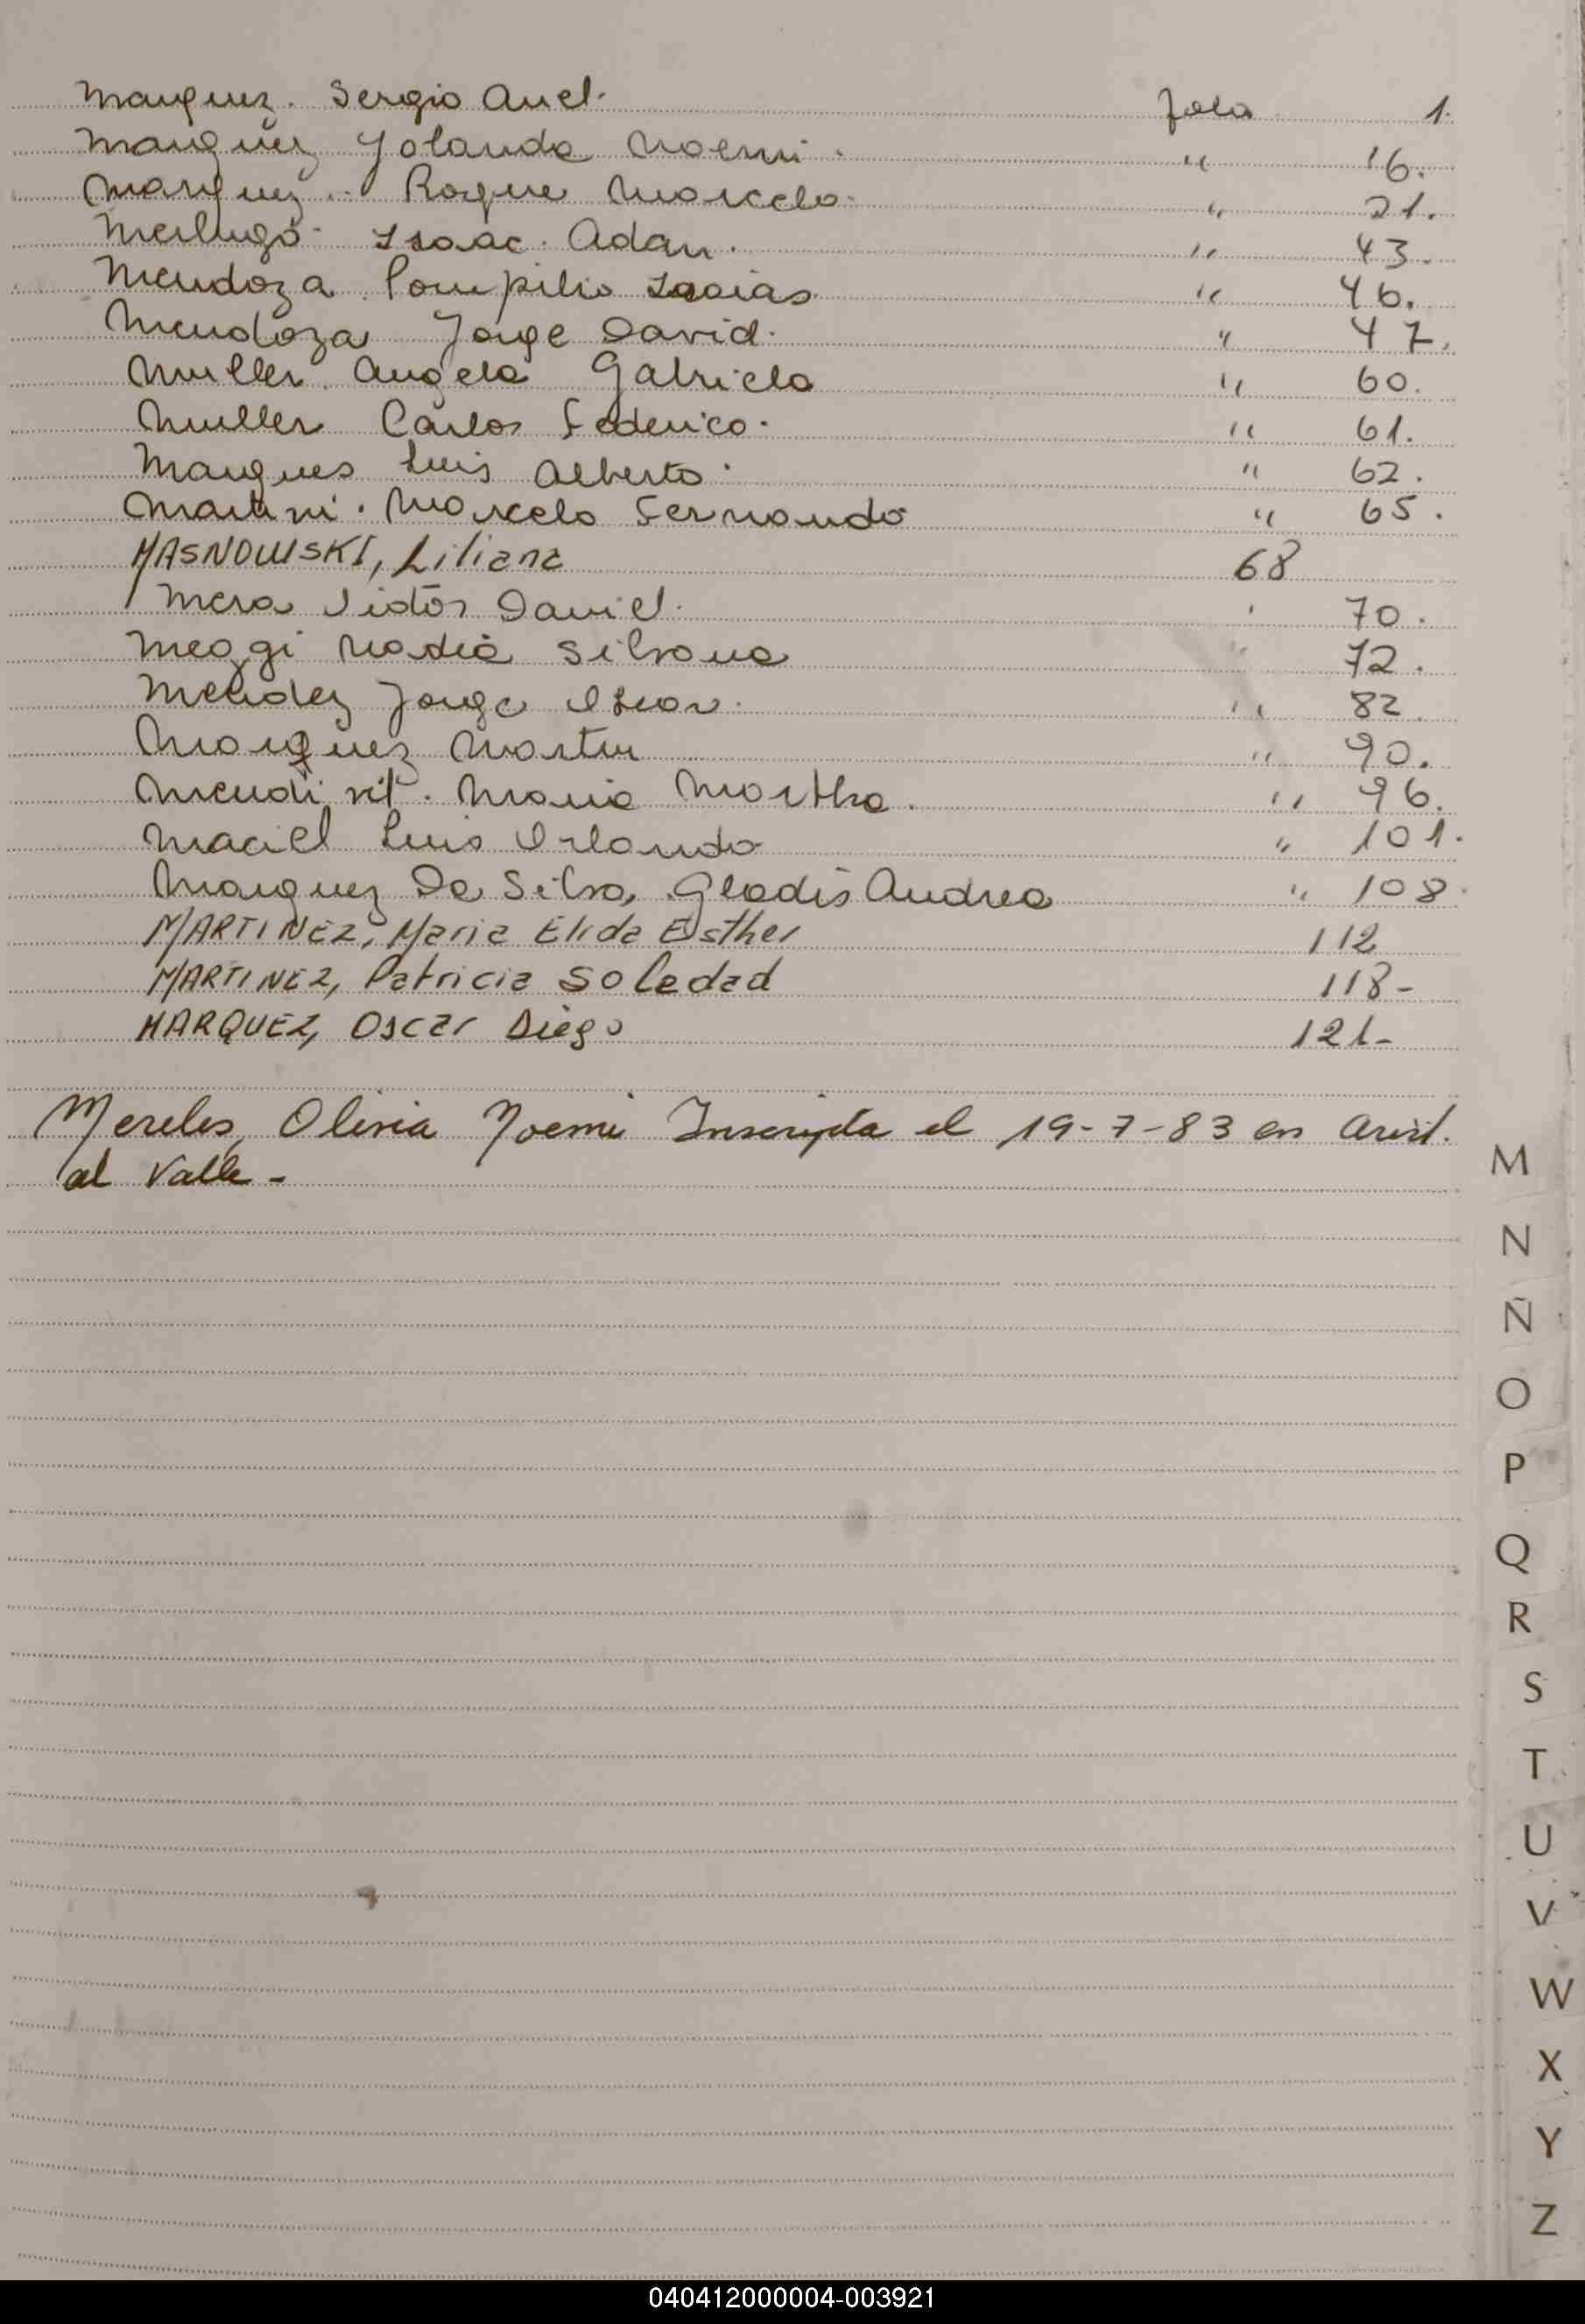 Marquez. Sergio Ariel. folio 1.
Marquez Yolanda Noemi. " 16.
Marquez. Roque Marcelo. " 21.
Isaac. Adan. " 43.
Mendoza Pompilio Isaias " 46.
Mendoza Jorge David. " 47.
Muller. Angela Gabriela " 60.
Muller Carlos Federico. " 61.
Marques Luis Alberto. " 62.
Martini. Marcelo Fernando " 65.
MASNOWSKI, Liliana 68
Mera Victor Daniel. " 70.
Meggi Nadia Silvana " 72.
Mendez Jorge Oscar. " 82
Marquez Martin " 90.
Maria Martha. " 96.
Maciel Luis Orlando " 101.
Marquez Da Silva, Gladis Andrea " 108.
MARTINEZ, Maria Elida Esther 112
MARTINEZ, Patricia Soledad 118-
MARQUEZ, Oscar Diego 121-
Mereles, Olivia Noemi Inscripta el 19-7-83 en Arist.
al Valle -
M
N
Ñ
O
P
Q
R
S
T
U
V
W
X
Y
Z
040412000004-003921